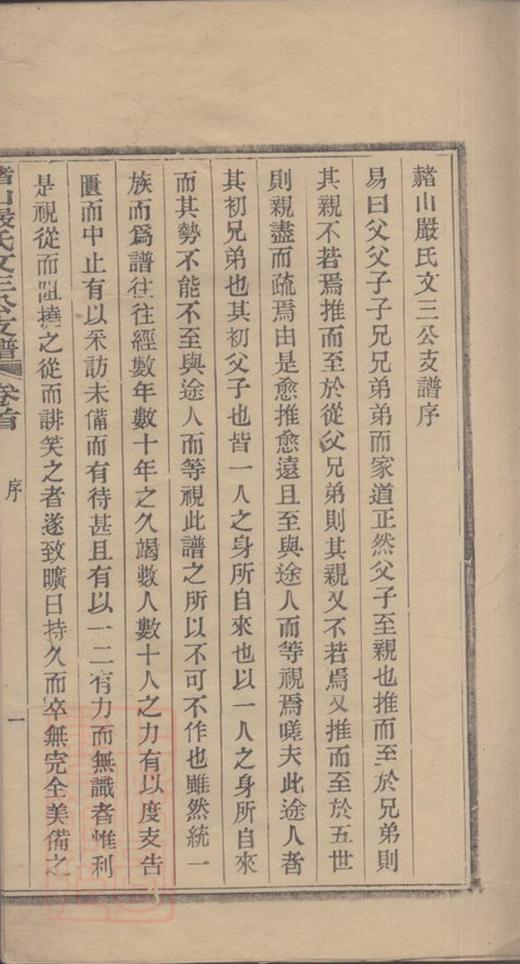 赭山嚴氏文三公支譜序
易曰父父子子兄兄弟弟而家道正然父子至親也推而至於兄弟則
其親不若焉推而至於從父兄弟則其親又不若焉又推而至於五世
則親盡而疏焉由是愈推愈遠且至與途人而等視焉嗟夫此途人者
其初兄弟也其初父子也皆一人之身所自來也以一人之身所自來
而其勢不能不至與途人而等視此譜之所以不可不作也雖然統一
族而爲譜往往經數年數十年之久竭數人數十人之力有以度支告
匱而中止有以采訪未備而有待甚且有以一二有力而無識者惟利
是視從而阻撓之從而誹笑之者遂致曠日持久而卒無完全美備之
赭山嚴氏文三公支譜 卷首 序 一